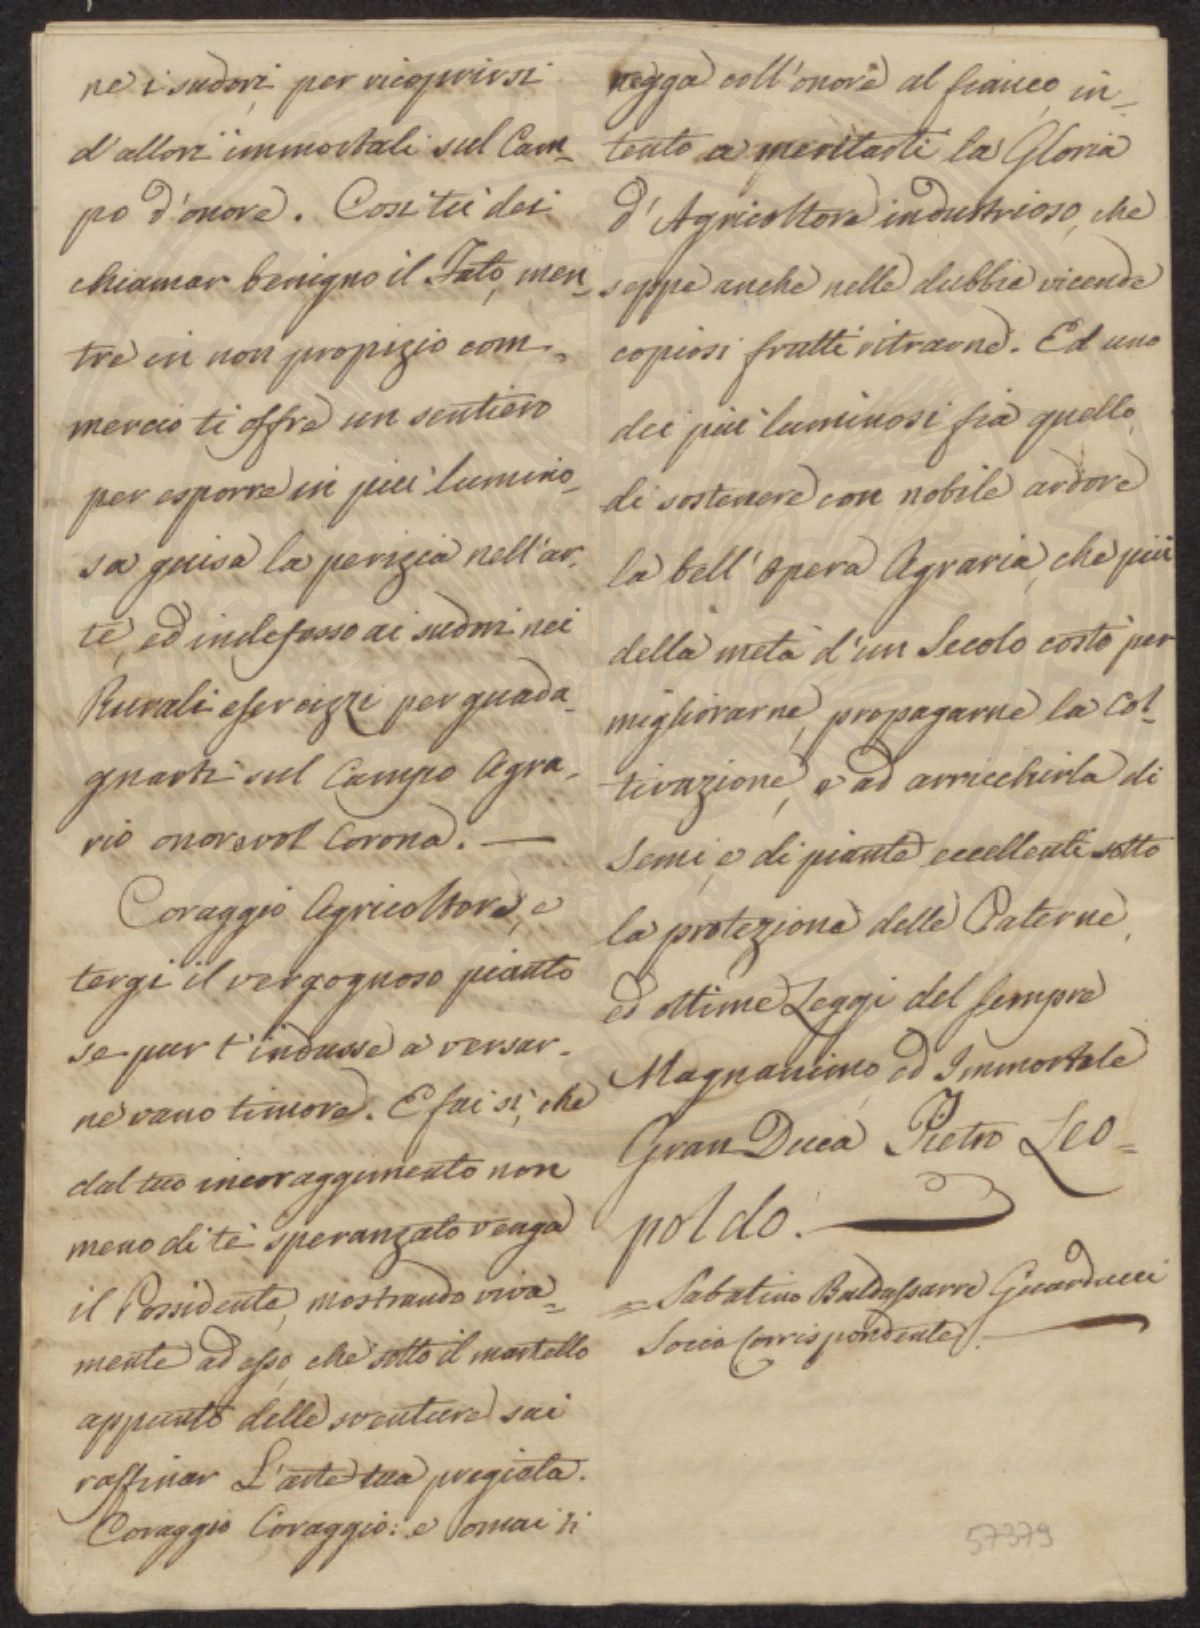 ne i sudori per ricoprirsi
d'allori immortali sul Cam=
po d'onore. Così tu dei
chiamar benigno il Fato, men=
tre in non propizio com=
mercio ti offre un sentiero
per esporre in più lumino=
sa guisa la perizia nell'ar=
te, ed indefesso ai sudori nei
Rurali esercizzi per guada=
gnarti sul Campo Agra=
rio onorevol Corona. —
Coraggio Agricoltore, e
tergi il vergognoso pianto
se pur t'indusse a versar=
ne vano timore. E fai sì, che
dal tuo incoraggimento non
meno di te speranzato venga
il Possidente, mostrando viva=
mente ad esso, che sotto il martello
appunto delle sventure sai
raffinar L'arte tua pregiata.
Coraggio Coraggio: e omai ti
vegga coll'onore al fianco, in=
tento a meritarti la Gloria
d'Agricoltore industrioso, che
seppe anche nelle dubbie vicende
copiosi frutti ritrarne. Ed uno
dei più luminosi fia quello,
di sostenere con nobile ardore
la bell'opera Agraria, che più
della metà d'un Secolo costò per
migliorarne, propagarne la Col=
tivazione, e ad arricchirla di
Semi, e di piante eccellenti sotto
la protezione delle Paterne,
ed ottime Leggi del sempre
Magnanimo, ed Immortale
Gran Duca Pietro Leo=
poldo. —
= Sabatino Baldassarre Guarducci
Socio Corrispondente. —
57379